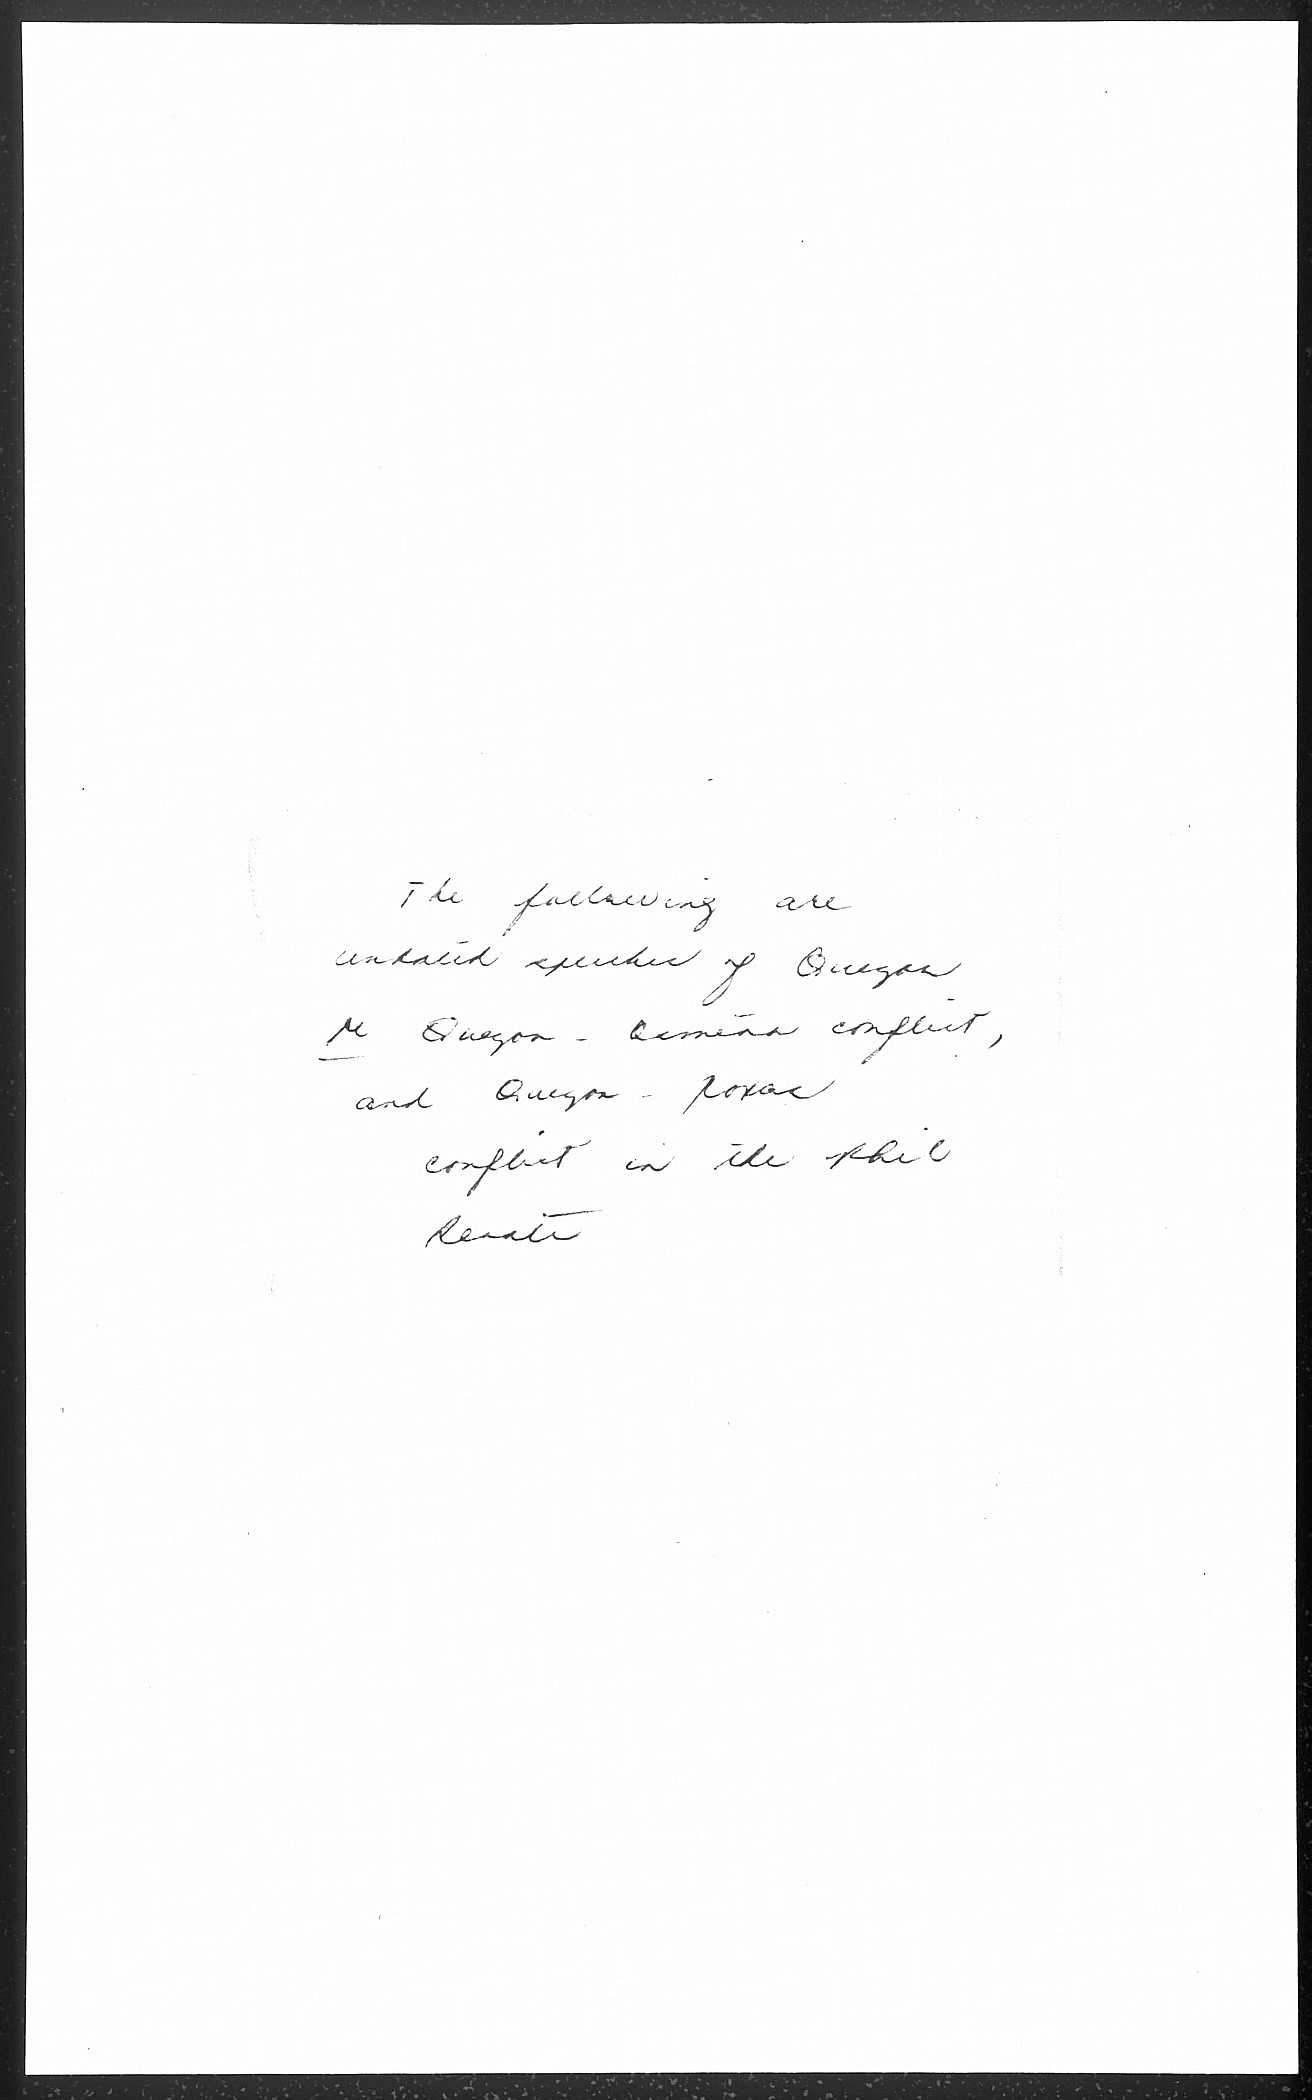 The following are
undated speeches of Quezon
re Quezon - Osmeña conflict,
and Quezon - Roxas
conflict in the Phil
Senate